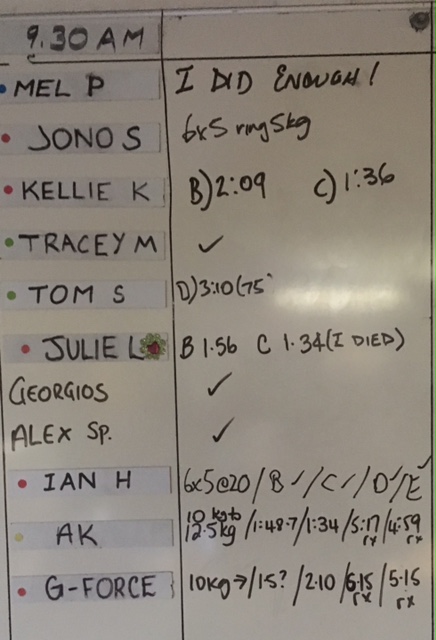 9.30 AM
MEL P I DID ENOUGH!
JONO S 6x5 ring 5kg
KELLIE K B) 2:09 C) 1:36
TRACEY M ✓
TOM S D) 3:10 (75
JULIE L B 1.56 C 1.34 (I DIED)
GEORGIOS ✓
ALEX SP. ✓
IAN H 6x5@20 / B ✓ / C ✓ / D ✓ / E ✓
AK 10 kg to 12.5kg / 1:48.7 / 1:34 / 5:17 rx / 4:59 rx
G-FORCE 10kg → / 15? / 2:10 / 6:15 rx / 5:15 rx